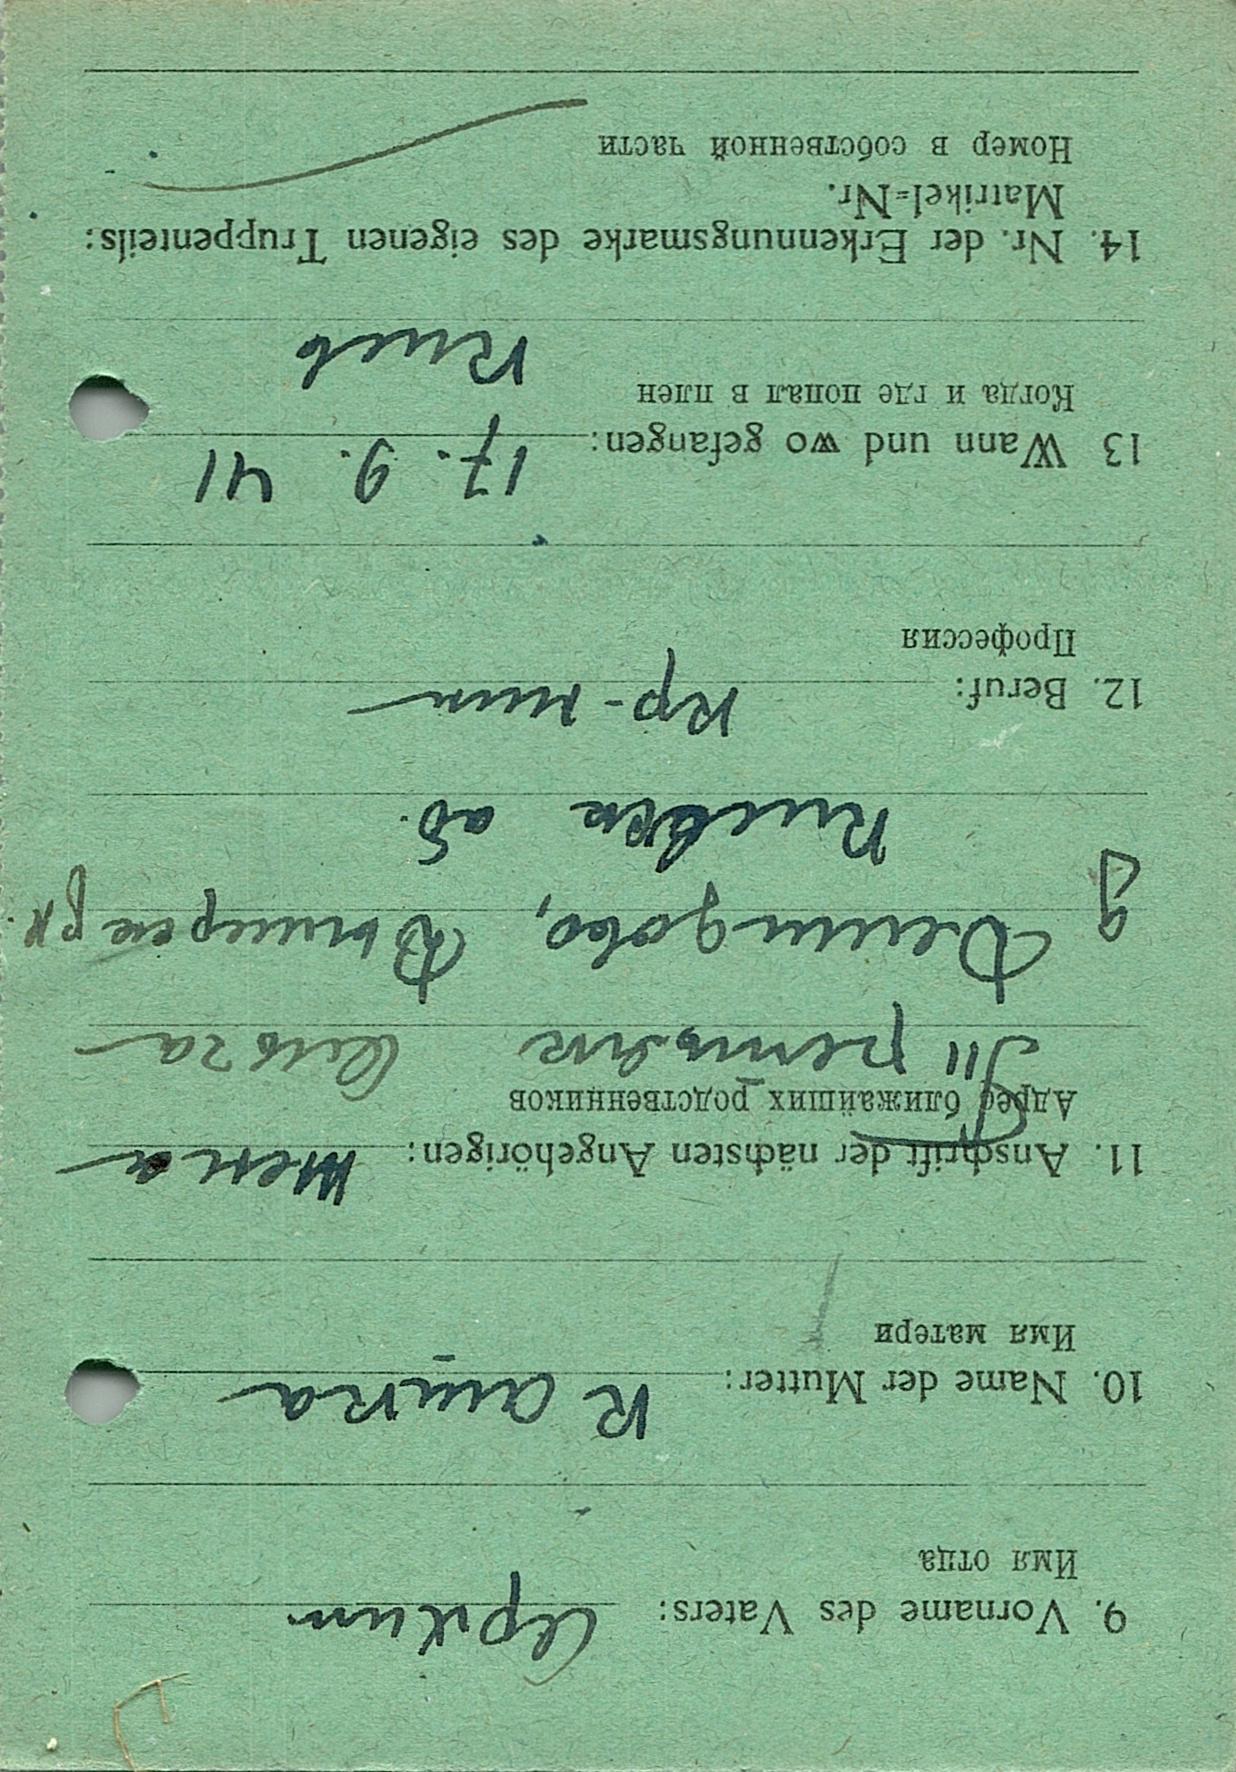 9. Vorname des Vaters:
Имя отца
10. Name der Mutter:
Имя матери
11. Anschrift der nächsten Angehörigen: жена
Адрес ближайших родственников
д Демидово,
Киевск об.
12. Beruf: кр-нин
Профессия
13 Wann und wo gefangen: 17. 9. 41
Когда и где попал в плен
Киев
14. Nr. der Erkennungsmarke des eigenen Truppenteils:
Matrikel=Nr.
Номер в собственной части